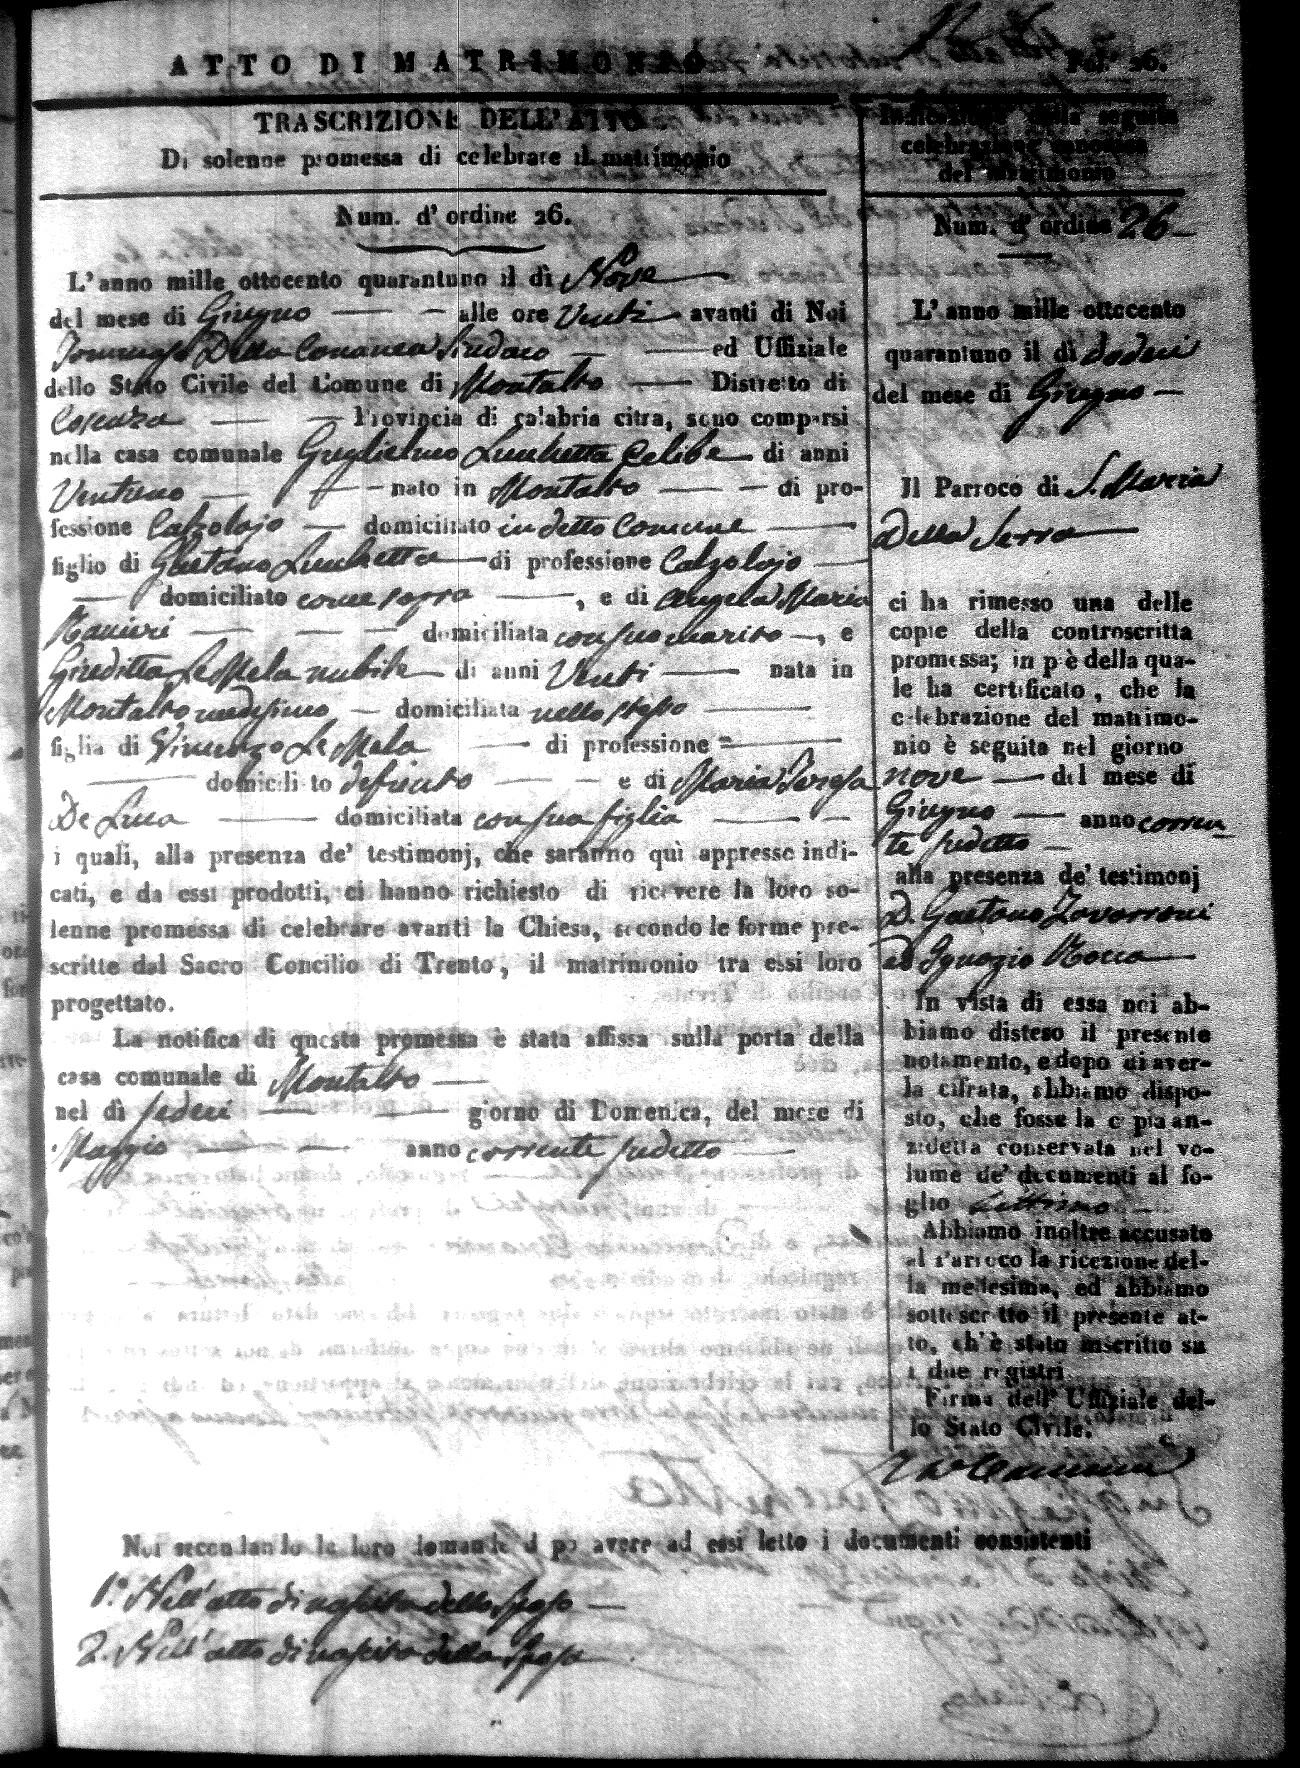 ATTO DI MATRIMONIO
Fol.º 26.
TRASCRIZIONE DELL'ATTO
Di solenne promessa di celebrare il matrimonio
Num. d'ordine 26.
L'anno mille ottocento quarantuno il dì Nove
del mese di Giugno — alle ore Venti avanti di Noi
Sindaco — ed Uffiziale
dello Stato Civile del Comune di Montalto — Distretto di
Cosenza — Provincia di calabria citra, sono comparsi
nella casa comunale Guglielmo Lucchetta Celibe di anni
Ventuno — nato in Montalto — di pro-
fessione Calzolajo — domiciliato in detto Comune —
figlio di Gaetano Lucchetta — di professione Calzolajo —
— domiciliato come sopra —, e di Angela Maria
Ranieri — domiciliata con suo marito —, e
Giuditta Le Mela nubile — di anni Venti — nata in
Montalto medesimo — domiciliata nello stesso —
figlia di Vincenzo Le Mela — di professione —
— domicili to defunto — e di Maria Teresa
De Luca — domiciliata con sua figlia —
i quali, alla presenza de' testimonj, che saranno quì appresse indi-
cati, e da essi prodotti, ci hanno richiesto di ricevere la loro so-
lenne promessa di celebrare avanti la Chiesa, secondo le forme pre-
scritte dal Sacro Concilio di Trento, il matrimonio tra essi loro
progettato.
La notifica di questa promessa è stata affissa sulla porta della
casa comunale di Montalto —
nel dì sedeci — giorno di Domenica, del mese di
Maggio — anno corrente sudetto —
Indicazione della seguita
celebrazione canonica
del Matrimonio
Num. d'ordine 26
L'anno mille ottocento
quarantuno il dì dodeci
del mese di Giugno —
Il Parroco di S. Maria
Della Serra —
ci ha rimesso una delle
copie della controscritta
promessa; in piè della qua-
le ha certificato, che la
celebrazione del matrimo-
nio è seguita nel giorno
nove — del mese di
Giugno — anno corren
te sudetto —
alla presenza de' testimonj
D. Gaetano Zavarroni
ed Ignazio Rocca —
In vista di essa noi ab-
biamo disteso il presente
notamento, e dopo di aver-
la cifrata, abbiamo dispo-
sto, che fosse la copia an-
zidetta conservata nel vo-
lume de' documenti al fo-
glio Settimo —
Abbiamo inoltre accusato
al Parroco la ricezione del-
la medesima, ed abbiamo
sottoscritto il presente at-
to, ch'è stato inscritto su
i due registri
Firma dell' Uffiziale del-
lo Stato Civile.
Noi secondando le loro domande d po avere ad essi letto i documenti consistenti
1.º Nell'atto di nascita dello Sposo —
2. Nell'atto di nascita della Sposa